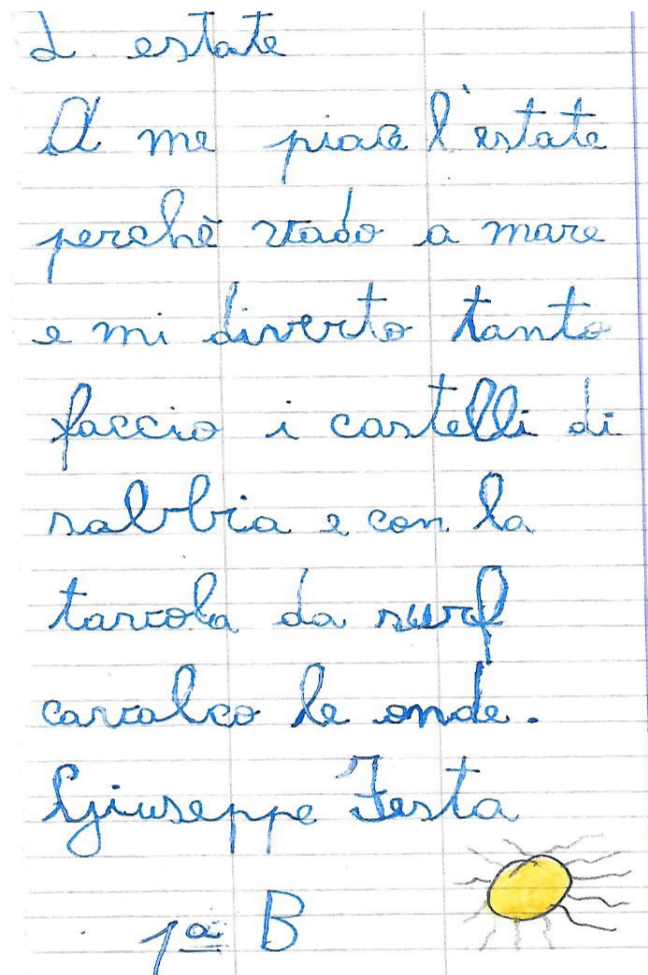 L estate
A me piace l'estate
perchè vado a mare
e mi diverto tanto
faccio i castelli di
sabbia e con la
tavola da surf
cavalco le onde.
Giuseppe Festa
1ª B